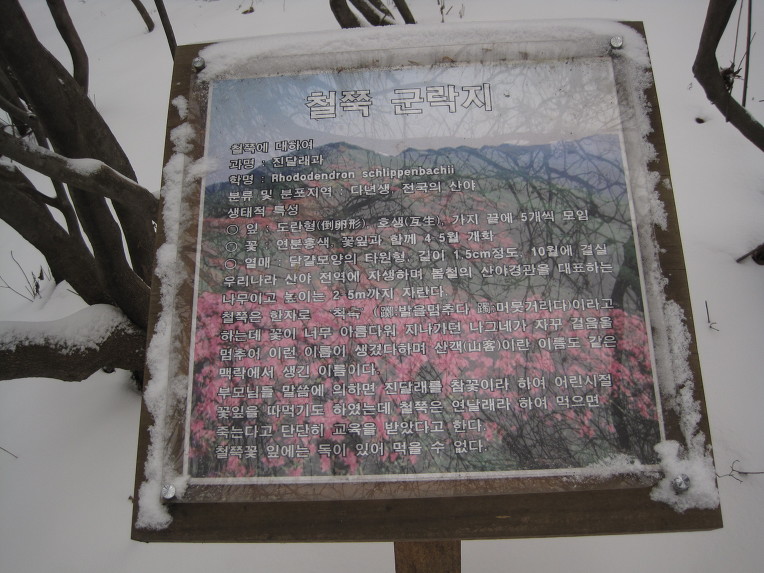 철쭉 군락지
철쭉에 대하여
과명 : 진달래과
학명 : Rhododendron schlippenbachii
분류 및 분포지역 : 다년생, 전국의 산야
생태적 특성
◎ 잎 : 도란형(倒卵形), 호생(互生), 가지 끝에 5개씩 모임
◎ 꽃 : 연분홍색, 꽃잎과 함께 4-5월 개화
◎ 열매 : 달걀모양의 타원형, 길이 1.5cm정도, 10월에 결실
우리나라 산야 전역에 자생하며 봄철의 산야경관을 대표하는
나무이고 높이는 2-5m까지 자란다.
철쭉은 한자로 척촉 (躑:발을멈추다 躅:머뭇거리다)이라고
하는데 꽃이 너무 아름다워 지나가던 나그네가 자꾸 걸음을
멈추어 이런 이름이 생겼다하며 산객(山客)이란 이름도 같은
맥락에서 생긴 이름이다.
부모님들 말씀에 의하면 진달래를 참꽃이라 하여 어린시절
꽃잎을 따먹기도 하였는데 철쭉은 연달래라 하여 먹으면
죽는다고 단단히 교육을 받았다고 한다.
철쭉꽃 잎에는 독이 있어 먹을 수 없다.